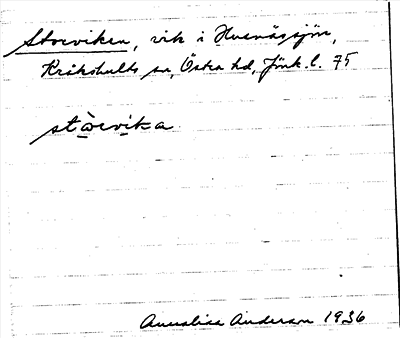 Storviken, vik i Hvenässjön,
Kråkshults sn, Östra hd, Jönk. l. 75
stòrvika
Annalisa Anderson 1936